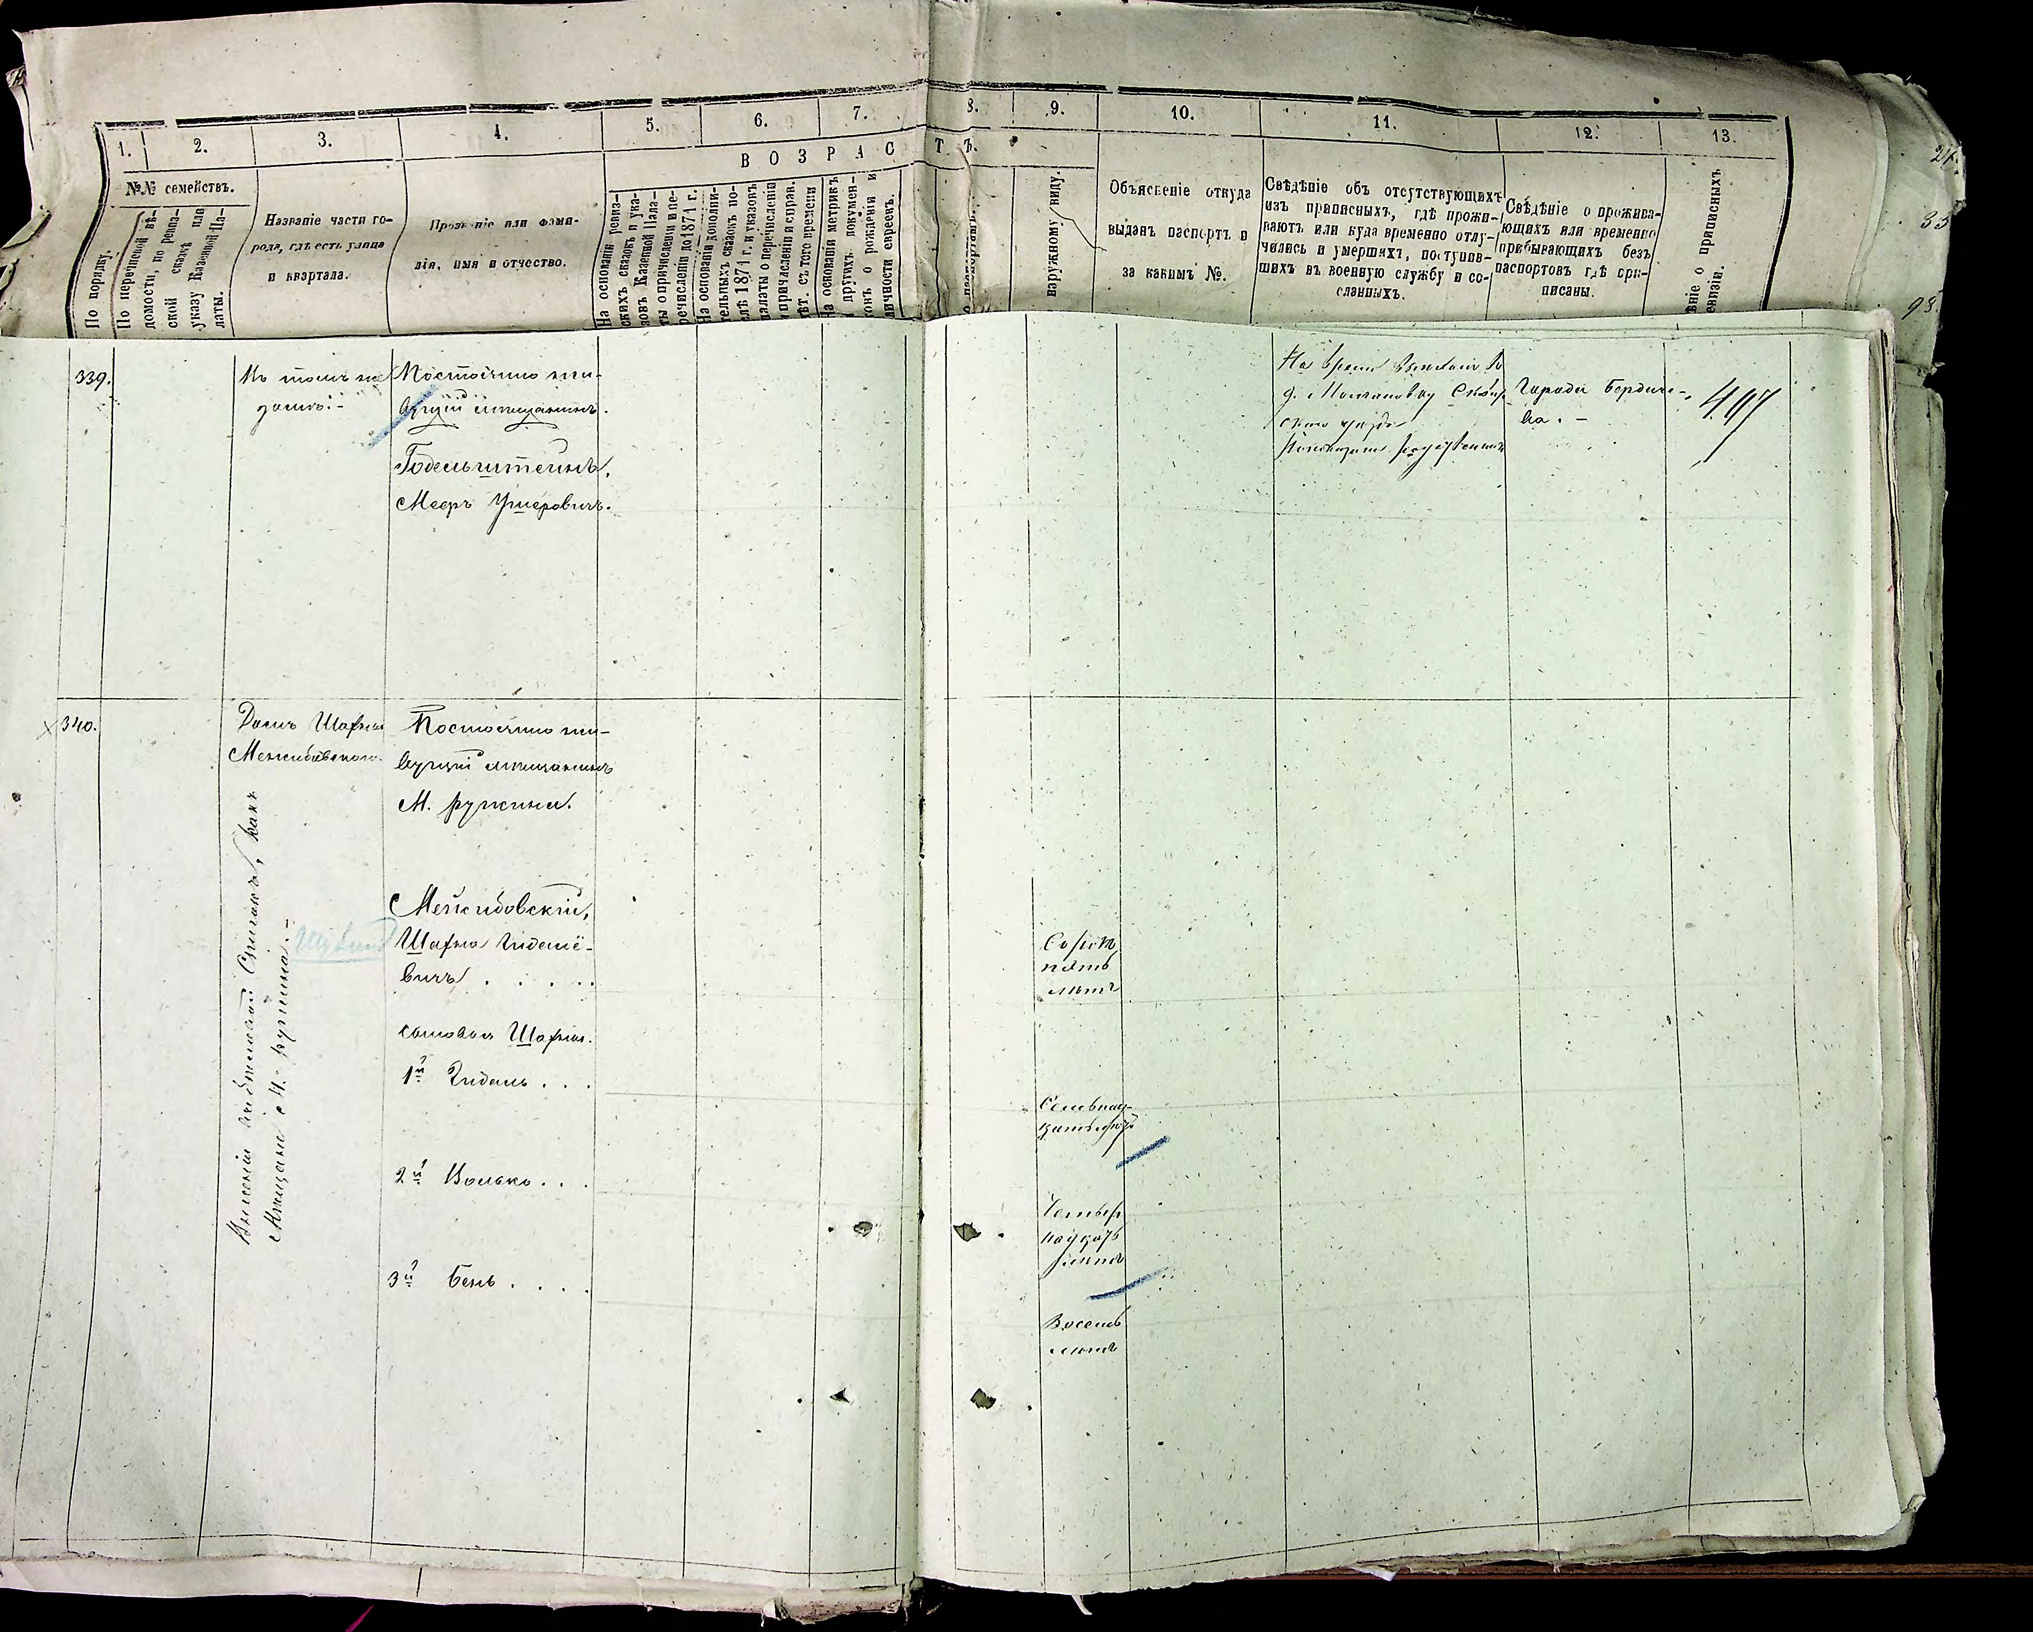 1. 2. 3. 4. 5. 6. 7. 8. 9. 10. 11. 12. 13.
ВОЗРАСТЪ.
№№ семействъ.
По порядку.
По перечневой вѣ-
домости, по ревиз-
ской сказкѣ или
указу Казенной Па-
латы.
Названіе части го-
рода, гдѣ есть улица
и квартала.
Прозваніе или фами-
лія, имя и отчество.
На основаніи ревиз-
скихъ сказокъ и ука-
зовъ Казенной Пала-
ты о причисленіи и пе-
речисленіи до 1874 г.
На основаніи дополни-
тельныхъ сказокъ по-
слѣ 1874 г. и указовъ
палаты о перечисленіи
и причисленіи и справ.
лѣт. съ того времени
На основаніи метрикъ
и другихъ докумен-
товъ о рожденіи и
личности евреевъ.
наружному виду.
Объясненіе откуда
выданъ паспортъ и
за какимъ №.
Свѣдѣніе объ отсутствующихъ
изъ приписныхъ, гдѣ прожи-
ваютъ или куда временно отлу-
чились и умершихъ, поступив-
шихъ въ военную службу и со-
сланныхъ.
Свѣдѣніе о прожива-
ющихъ или временно
прибывающихъ безъ
паспортовъ гдѣ при-
писаны.
ѣніе о приписныхъ
евизіи.
339.
Въ томъ же
домѣ. –
Постоянно жи-
вущій мѣщанинъ.
Годельштейнъ,
Мееръ Ушеровичъ.
На время
д. Молчановку Сквир
скаго уѣзда
Города Бердиче-
ва. –
407
340.
Домъ Шафны
Межибовскаго.
Постоянно жи-
вущій мѣщанинъ
М. Ружина.
Межибовскій,
Шафна Гидалё-
вичъ . . . . .
Сорокъ
пять
лѣтъ
сыновья Шафны.
1й Гидаль . . .
Семьнад-
цать лѣтъ
2й Волько . . .
Четыр
надцать
лѣтъ
3й Бень . . . .
Восемь
лѣтъ
Списокъ, какъ
Мѣщане М. Ружина. –